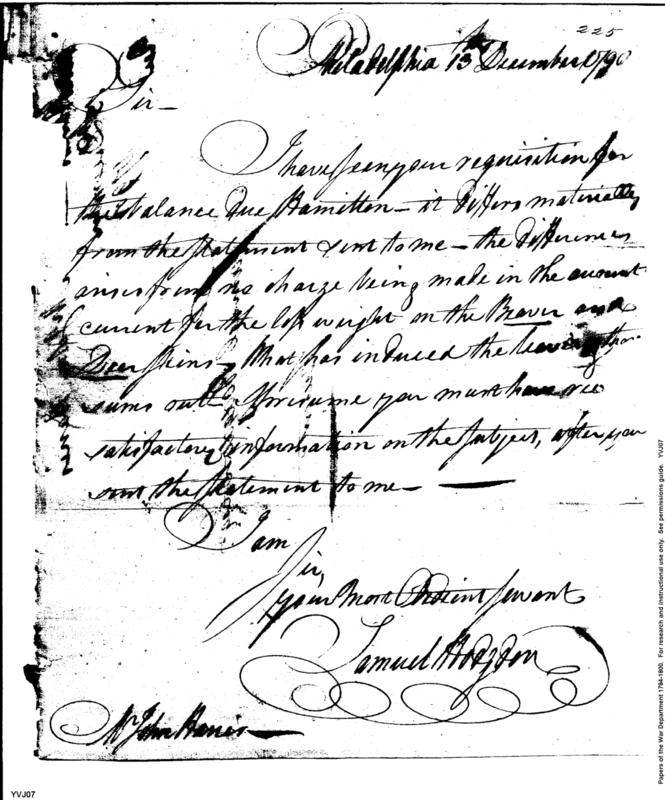 225
Philadelphia 13th December 1798
Sir —
I have seen your requisition for
the balance due Hamilton — it differs materially
from the statement sent to me — the difference
arises from no charge being made in the account
current for the loss weight on the Beaver and
Deer skins — What has induced the leaving these
sums out I presume you must have rec
satisfactory information on the subject, after you
sent the statement to me —
I am
Sir,
your most Obedient Servant
Samuel Hodgdon
Mr John Harris —
YVJ07
Papers of the War Department 1784-1800. For research and instructional use only. See permissions guide. YVJ07